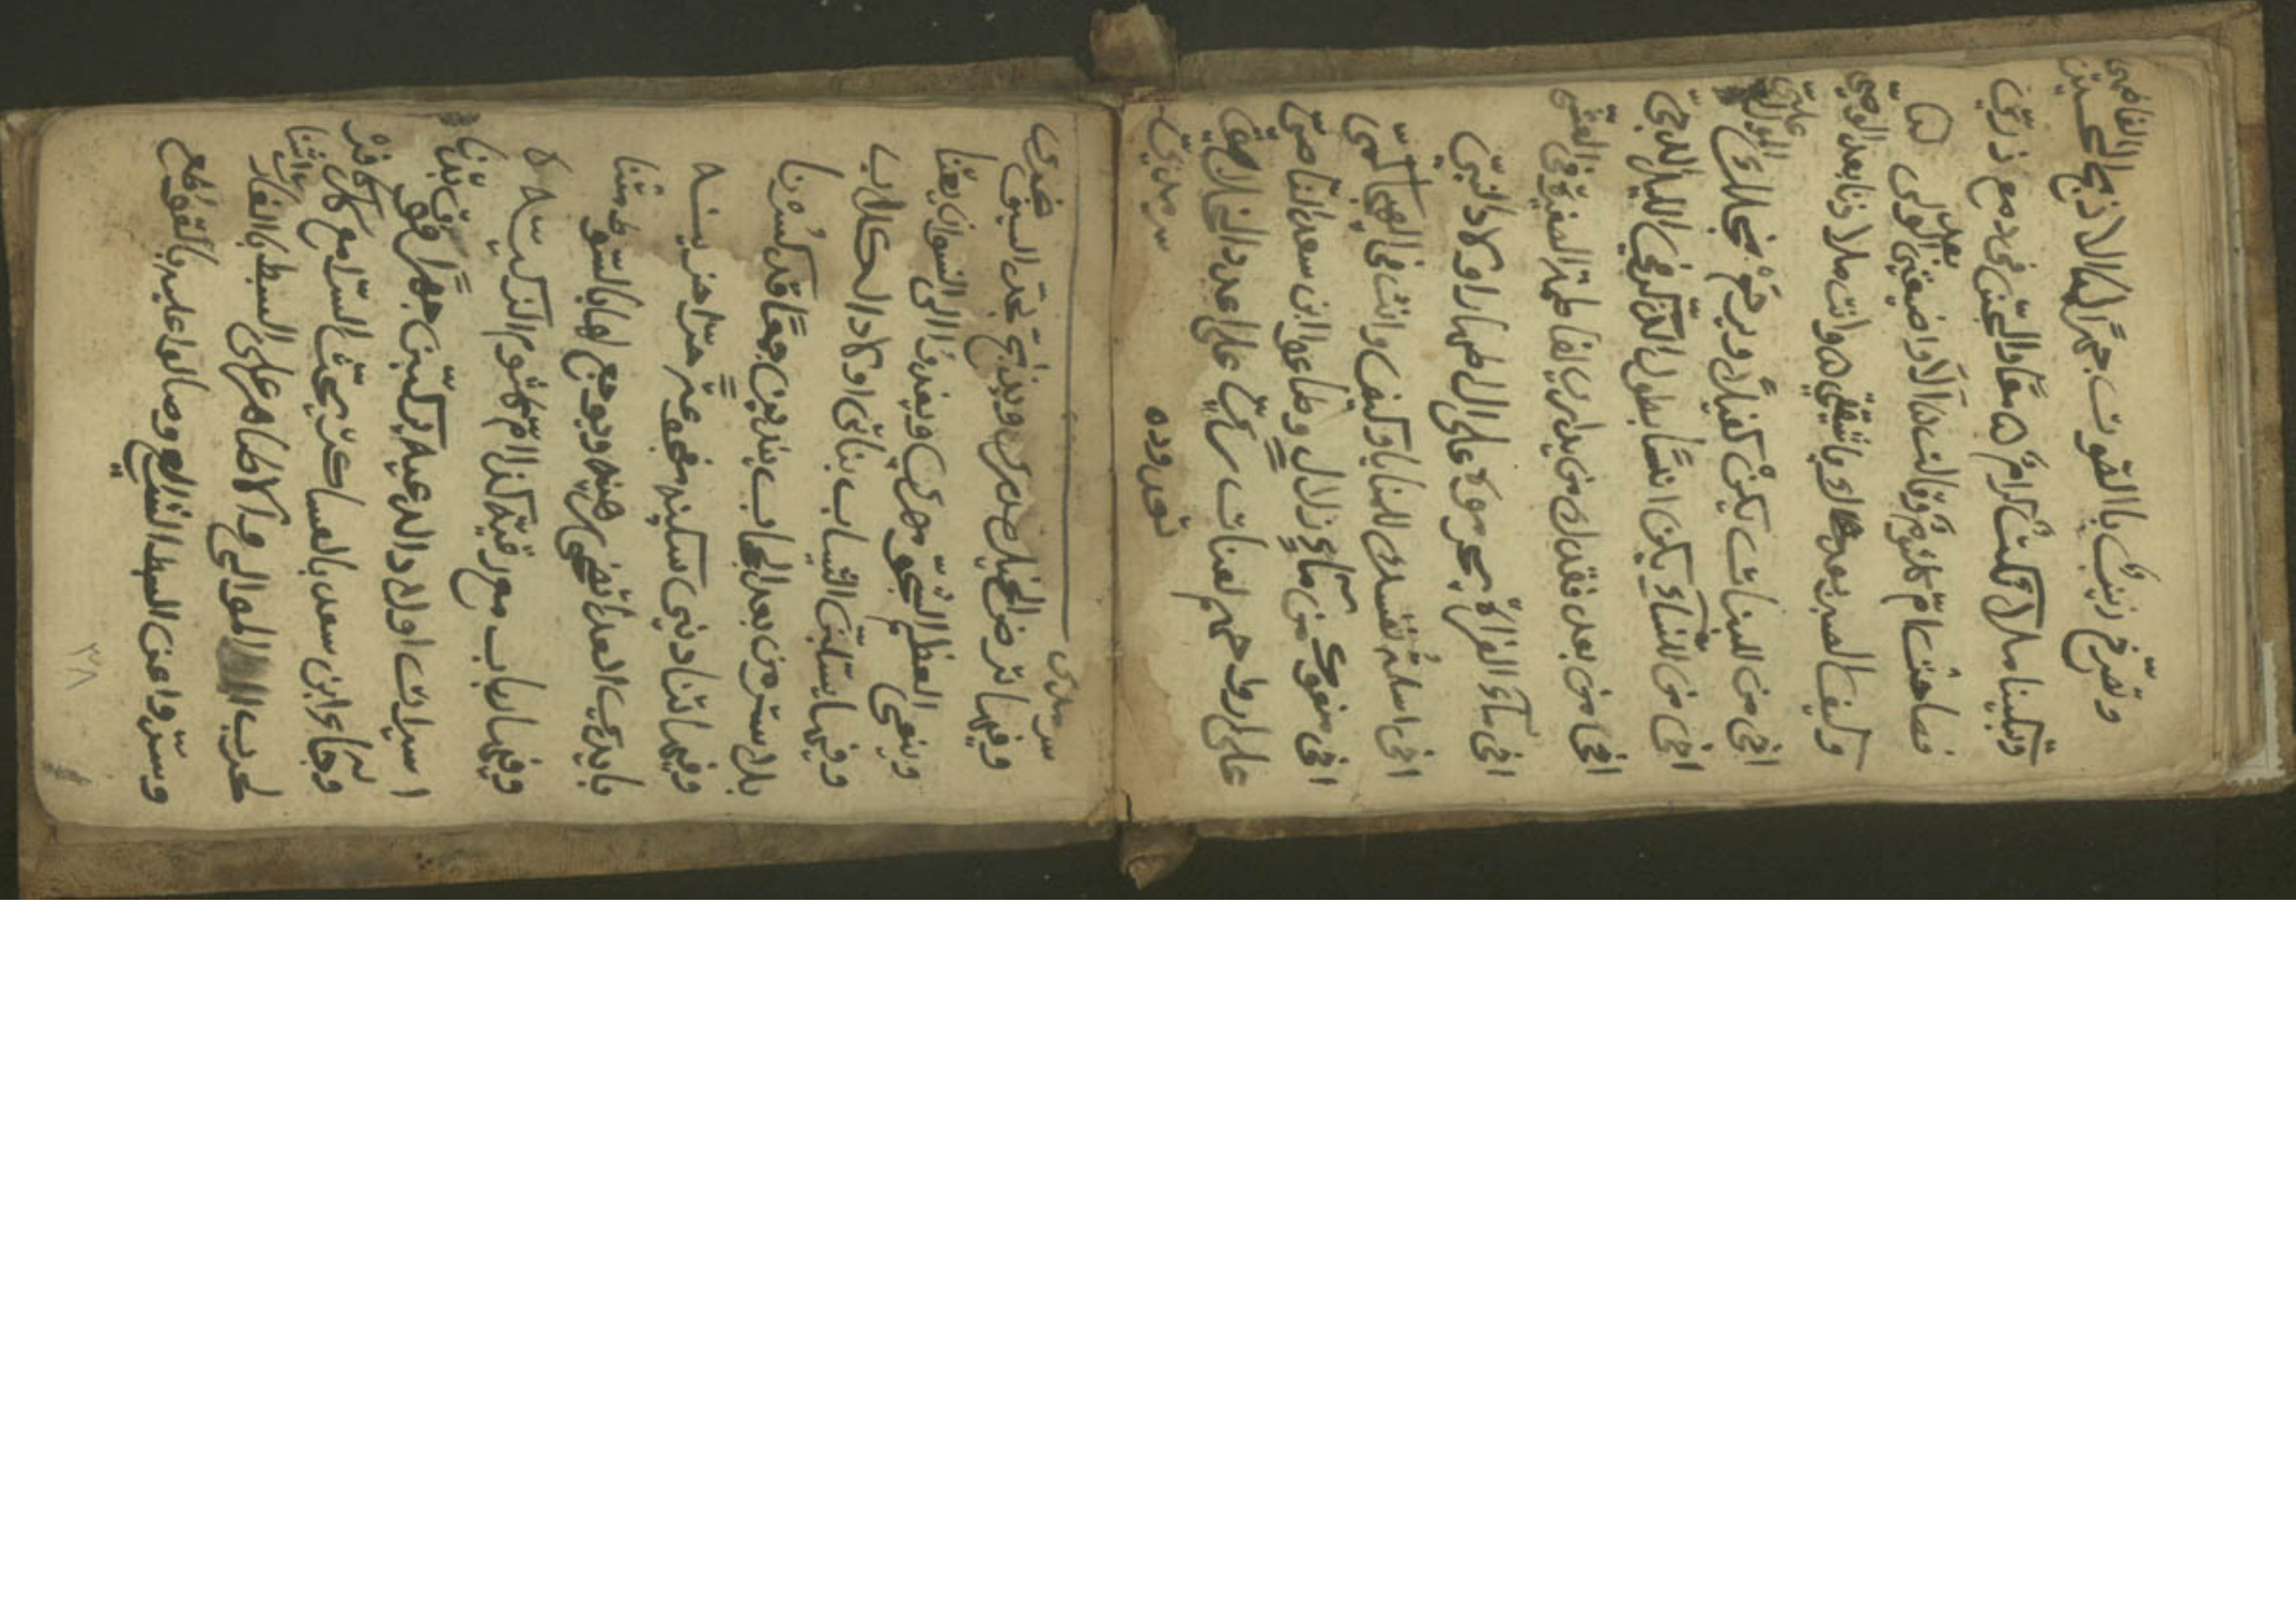 وتصرخ زينب بالصوت جهرا
وتبكينا ملائكة كرام ه معا والجن في دمع ذري
فصاحت ام كلثوم وقالت ه الا واضيعتي بعد الولى
وكيف الصبر بعدك يا شقيقي ه وانت ملاذنا بعد الوصي
اخى من للبنات يكن كفيلا ويرحم
اخي من للنساء يكن بطول الليل الدجي
اخى من بعد فقدك من يدارى لفاطمة الصغيرة في العشي
اخى ماء الفراة محرموه على الاطهار اولاد النبي
اخى اسلمت نفسك للمنايا وكيف وانت في الهيجا كمي
اخى منعوك من ماء زلال وطاعوا ابن سعد الناصبي
على ارواحهم لعنات ربي على عدد الخلايق
سرمدي
سرمدى
وفيها ترض الخيل صدرى ويذبح بحد السيوف
وينعى ويغدو الى النسوان بغتا
وفيها يستلبن الثياب بناتى اولاد الكلاب
بلا ستر من بعد الحجاب ينادين جمعا قد كسرنا
وفيها تنادينى سكينه مفجوعة حرا حزينه
بايدي العدا تضحى رهينه ويوجع لها بالسوط متنا
وفيها رباب مع رقيه كذا ام كلثوم الزكيه
اسيرات اولاد الدعيه يبكين جهرا فوق بدنا
وجاء ابن سعد بالعساكر يحث السرا مع كل كافر
لحرب الموالى والاطاهر على السبط بالغارات شنا
وسدوا عن السبط الشرايع وصالوا عليه بالقواطع
٣٨